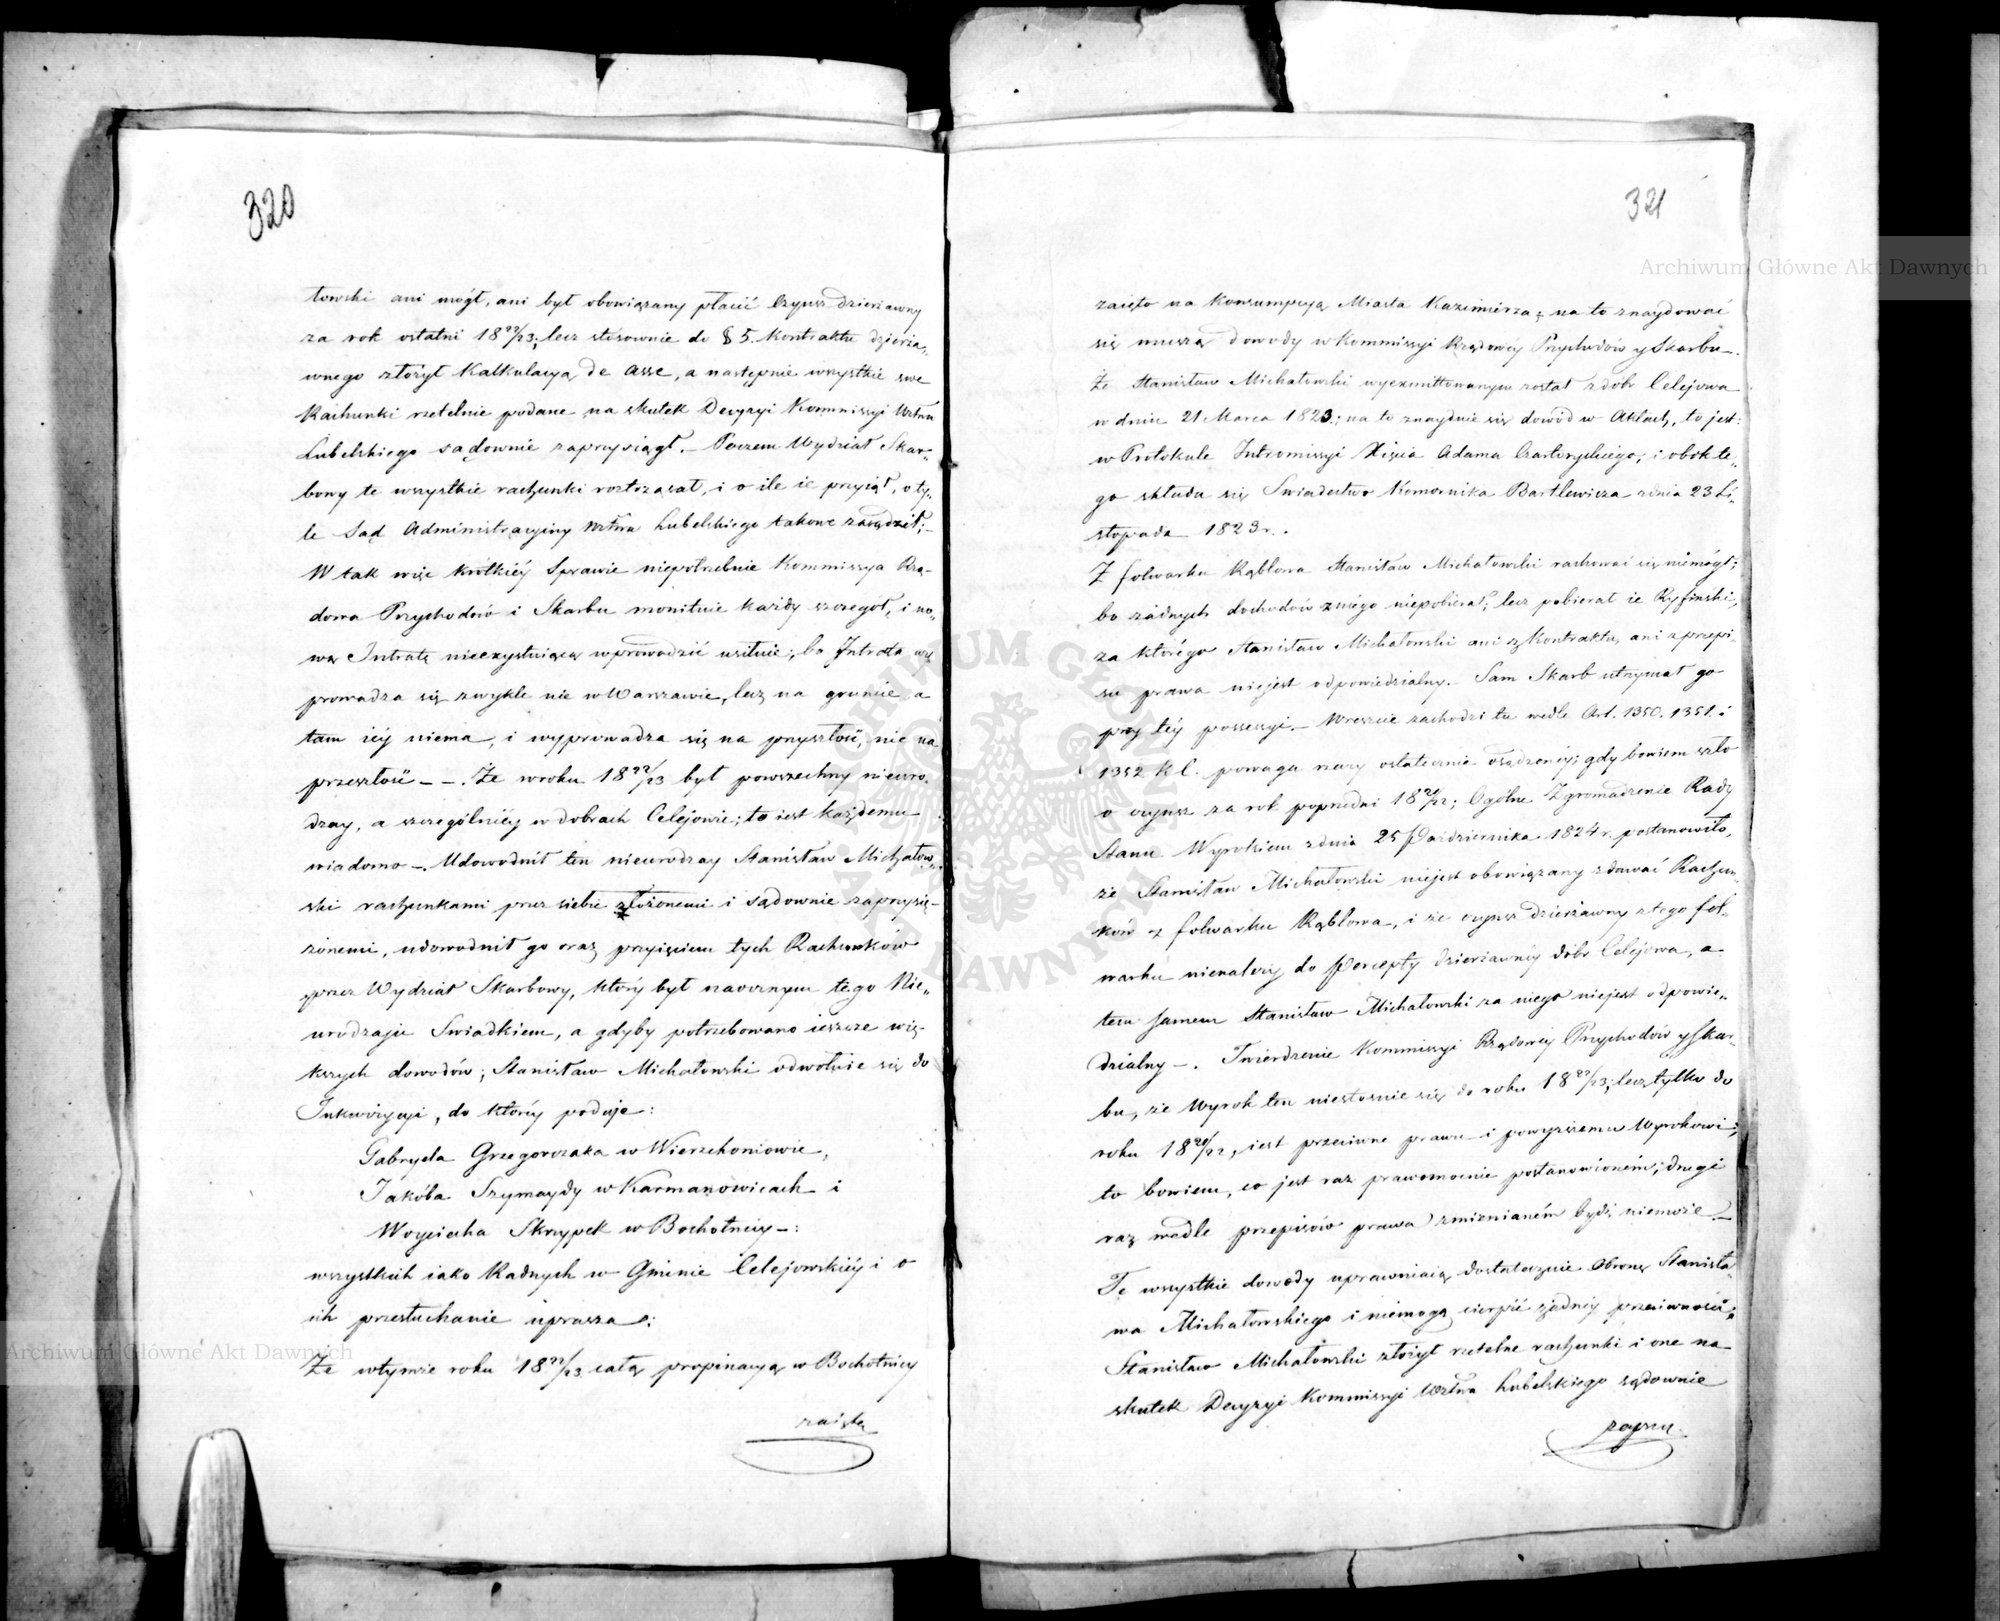 320
towski ani mógł, ani był obowiązany płacić Czynsz dzierżawny
za rok ostatni 18 22/23; lecz stosownie do § 5. Kontraktu dzierża„
wnego złożył Kalkulacyą de Asse, a następnie wszystkie swe
Rachunki rzetelnie podane na skutek Decyzyi Kommissyi Wztwa
Lubelskiego sądownie zaprzysiągł. – Poczem Wydział Skar„
bowy te wszystkie rachunki roztrząsał, i o ile ie przyiął, o ty„
le Sąd Administracyiny Wztwa Lubelskiego takowe zasądził; –
W tak więc krótkiéy Sprawie niepotrzebnie Kommissya Rzą„
dowa Przychodów i Skarbu monituie każdy szczegół, i no„
wą Intratę nieexystuiącą wprowadzić usiłuie; bo Intrata wy
prowadza się zwykle nie w Warszawie, lecz na gruncie, a
tam iéy niema, i wyprowadza się na przyszłość, nie na
przeszłość – –. Że w roku 18 22/23 był powszechny nieuro„
dzay, a szczególniéy w dobrach Celejowie; to iest każdemu
wiadomo –. Udowodnił ten nieurodzay Stanisław Michałow„
ski rachunkami przez siebie złożonemi i sądownie zaprzysię„
żonemi, udowodnił go oraz przyięciem tych Rachunków
przez Wydział Skarbowy, który był naocznym tego Nie„
urodzaju Swiadkiem, a gdyby potrzebowano ieszcze wię„
kszych dowodów; Stanisław Michałowski odwołuie się do
Inkwizycyi, do któréy podaje:
Gabryela Grzegorczaka w Wierzchoniowie,
Jakóba Szymaydy w Karmanowicach i
Woyciecha Skrzypek w Bochotnicy –:
wszystkich iako Radnych w Gminie Celejowskiéy i o
ich przesłuchanie uprasza:
Że w tymże roku 18 22/23 całą propinacyą w Bochotnicy
zaięta
321
zaięto na Konsumpcyą Miasta Kazimierza; na to znaydować
się muszą dowody w Kommissyi Rządowéy Przychodów y Skarbu –.
Że Stanisław Michałowski wyexmittowanym został z dóbr Celejowa
w dniu 21 Marca 1823; na to znaydzie się dowód w Aktach, to jest:
w Protokule Intromissyi Xięcia Adama Czartoryskiego, i obok te„
go składa się Swiadectwo Komornika Bartlewicza z dnia 23 Li„
stopada 1823 r.
Z folwarku Rąblowa Stanisław Michałowski rachować się niemógł;
bo żadnych dochodów z niego niepobierał; lecz pobierał ie Ryfinski,
za którego Stanisław Michałowski ani z Kontraktu, ani z przepi„
su prawa niejest odpowiedzialny. – Sam Skarb utrzymał go
przy téy possessyi. – Wreszcie zachodzi tu wedle Art. 1350. 1351. i
1352 K C. powaga rzeczy ostatecznie osądzonéy; gdy bowiem szło
o czynsz za rok poprzedni 18 21/22; Ogólne Zgromadzenie Rady
Stanu Wyrokiem z dnia 25 Pazdziernika 1824 r. postanowiło,
że Stanisław Michałowski niejest obowiązany zdawać Rachun„
ków z folwarku Rąblowa, i że czynsz dzierżawny z tego fol„
warku nienależy do Percepty dzierżawnéy dóbr Celejowa, a
tem samem Stanisław Michałowski za niego niejest odpowie„
dzialny –. Twierdzenie Kommissyi Rządowéy Przychodów y Skar„
bu, że Wyrok ten niestosuie się do roku 18 22/23; lecz tylko do
roku 18 21/22, iest przeciwne prawu i powyższemu Wyrokowi;
to bowiem, co jest raz prawomocnie postanowioném; drugi
raz wedle przepisów prawa zmienianém bydź niemoże. –
Te wszystkie dowody uprawniaią dostatecznie Obronę Stanisła„
wa Michałowskiego i niemogą cierpieć żadnéy przeciwności;
Stanisław Michałowski złożył rzetelne rachunki i one na
skutek Decyzyi Kommissyi Wztwa Lubelskiego sądownie
zaprzy.
Archiwum Główne Akt Dawnych
Archiwum Główne Akt Dawnych
ARCHIWUM GŁÓWNE AKT DAWNYCH